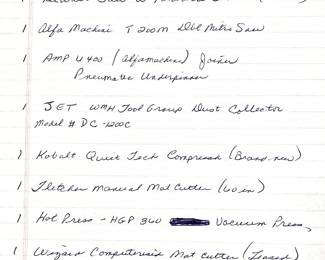 1 Alfa Machine T200M Dbl Mitre Saw
1 AMP U400 (Alfamachine) Joiner
Pneumatic Underpinner
1 JET WMH Tool Group Dust Collector
Model # DC-1200C
1 Kobalt Quiet Tech Compressor (Brand new)
1 Fletcher Manual Mat Cutter (60 in)
1 Hot Press - HGP 360 Vacuum Press,
1 Wizard Computerized Mat Cutter (Leased)